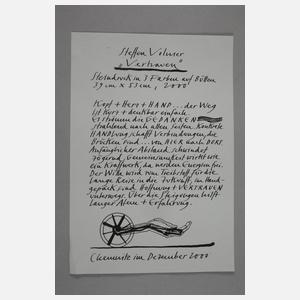 Steffen Volmer
„Vertrauen"
Steindruck in 3 Farben auf Bütten
39 cm x 53 cm, 2000
Kopf + Herz + HAND... der Weg
ist kurz + denkbar einfach.
Erst formen die GEDANKEN
strahlend nach allen Seiten. Konkrete
HANDlung schafft Verbindungen, die
Brücken sind ... von HIER nach DORT.
Anfänglicher Abstand schwindet
zögernd, Gemeinsamkeit wirkt wie
ein Kraftwerk, da werden Energien frei.
Der Wille wird zum Treibstoff für die
lange Reise in die Zukunft, im Hand-
gepäck sind Hoffnung + VERTRAUEN
unterwegs. Über die Steigungen hilft
langer Atem + Erfahrung.
Chemnitz im Dezember 2000